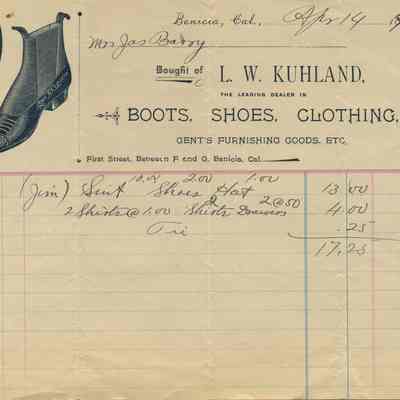 Benicia, Cal., Apr 14
Mrs Jas Barry
Bought of L. W. KUHLAND,
THE LEADING DEALER IN
BOOTS, SHOES, CLOTHING,
GENT'S FURNISHING GOODS, ETC.
First Street, Between F and G, Benicia, Cal.
10.00 2.00 1.00
(Jim) Suit Shoes Hat 13 00
2 Shirts @ 1.00 2 Shirts Drawers 2 @ 50 4.00
Tie .25
17.25